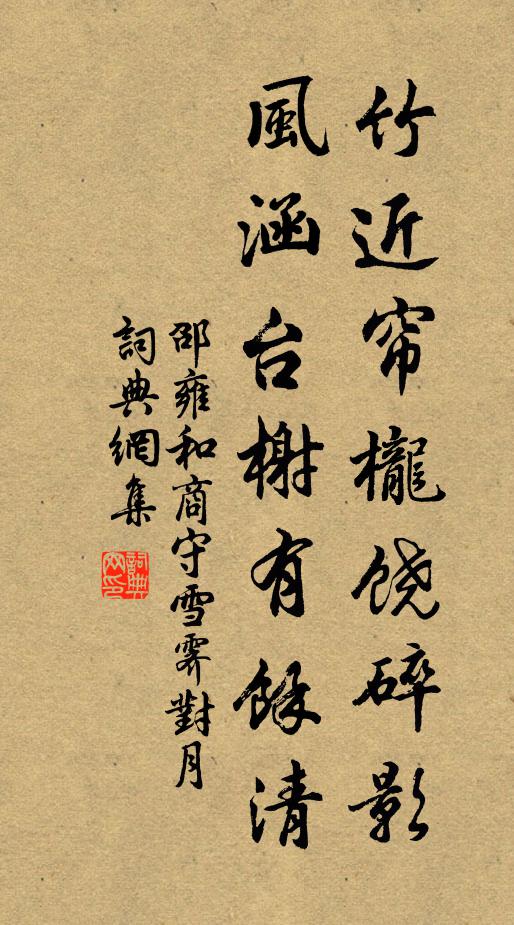 竹近帘櫳饶碎影
風涵台榭有餘清
邵雍和商守雪霽對月
詞典網集
詞典網印